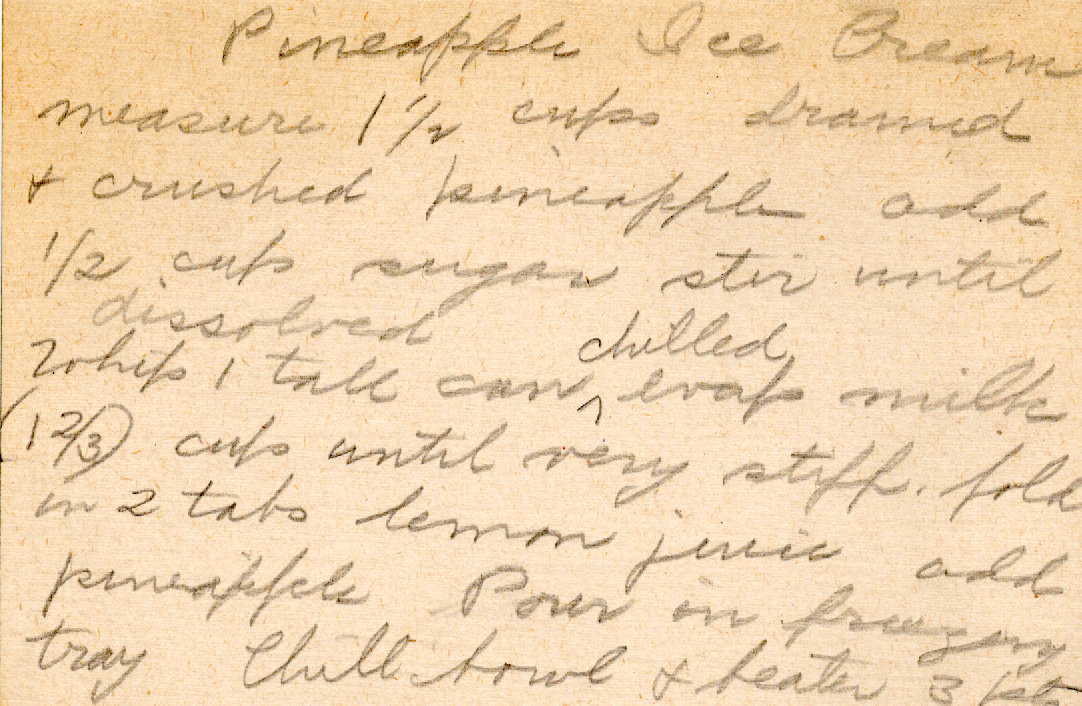 Pineapple Ice Cream
measure 1 1/2 cups drained
+ crushed pineapple add
1/2 cup sugar stir until
dissolved
chilled
Whip 1 tall can ^ evap milk
(1 2/3) cup until very stiff. fold
in 2 tabs lemon juice add
pineapple Pour in freezing
tray Chill bowl + beater 3 pts